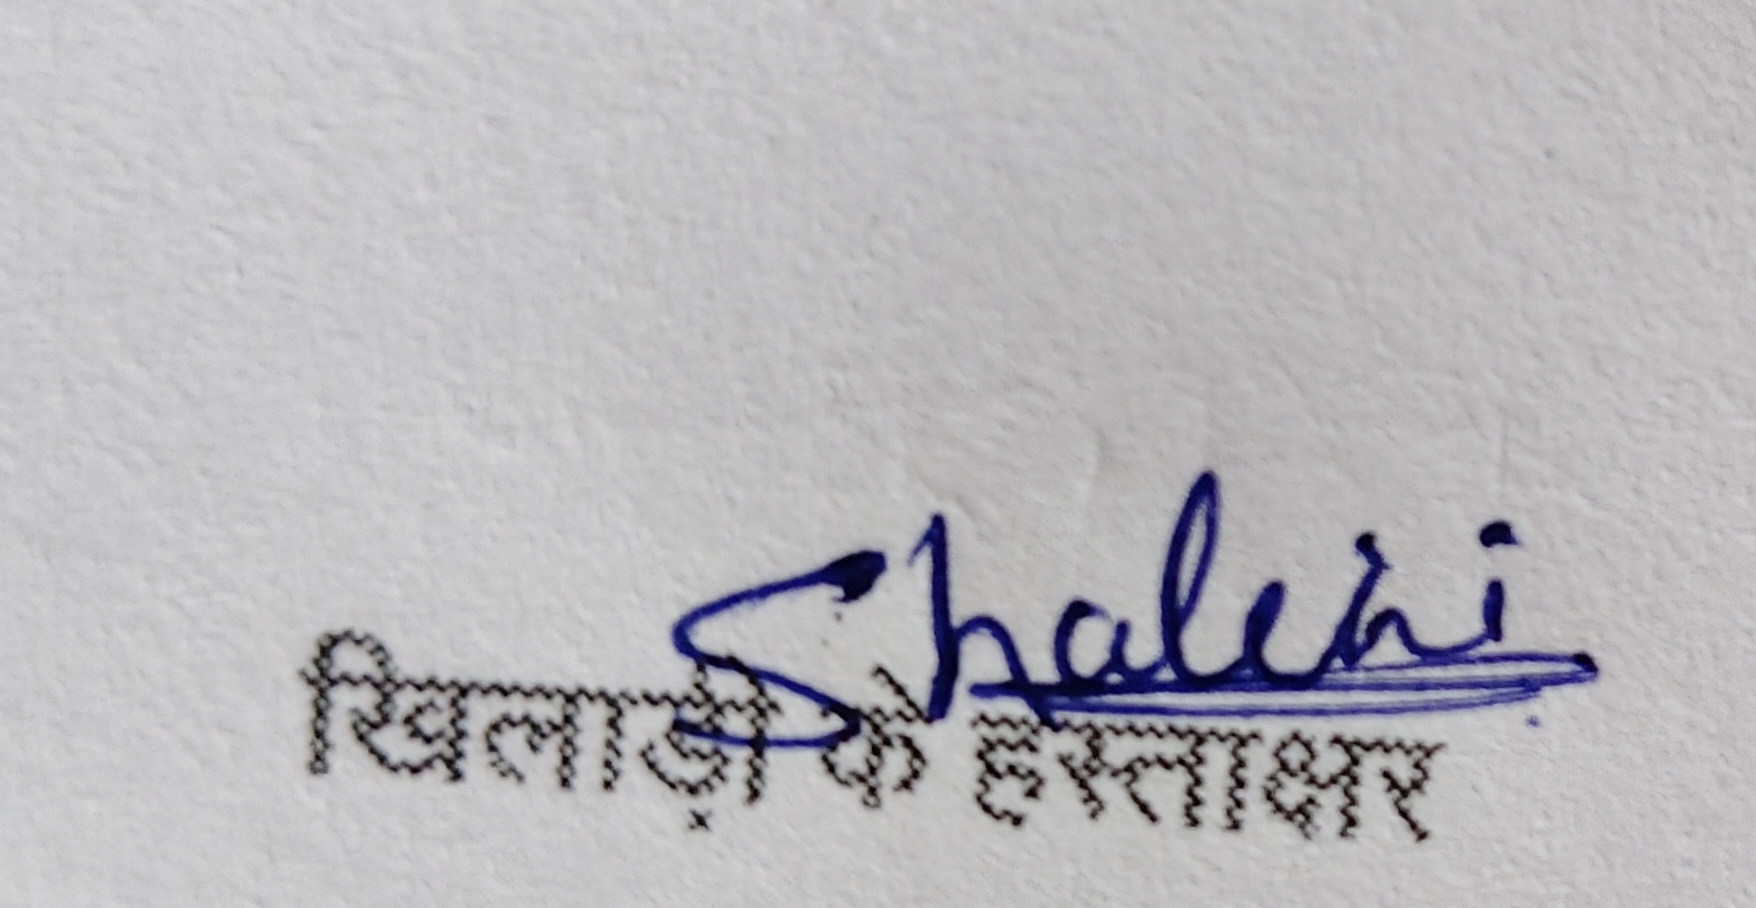 Shalini
खिलाड़ी के हस्ताक्षर